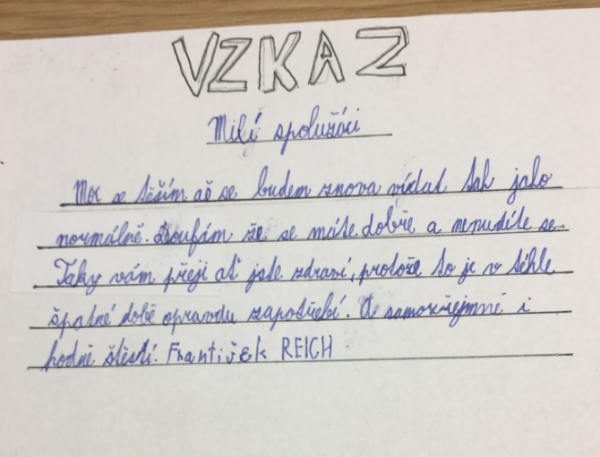 VZKAZ
Milí spolužáci
Moc se těším až se budem znova vídat tak jako
normálně. Doufám že se máte dobře a nenudíte se.
Taky vám přeji ať jste zdraví, protože to je v téhle
špatné době opravdu zapotřebí. A samozřejmně i
hodně štěstí. František REICH